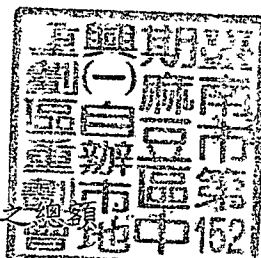 臺南市第152
期麻豆區中
興(一)自辦市地
重劃區重劃會
之總額